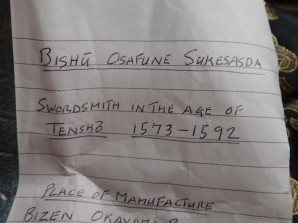 BISHŪ OSAFUNE SUKESASDA
SWORDSMITH IN THE AGE OF
TENSHŌ 1573-1592
PLACE OF MANUFACTURE
BIZEN OKAYAMA